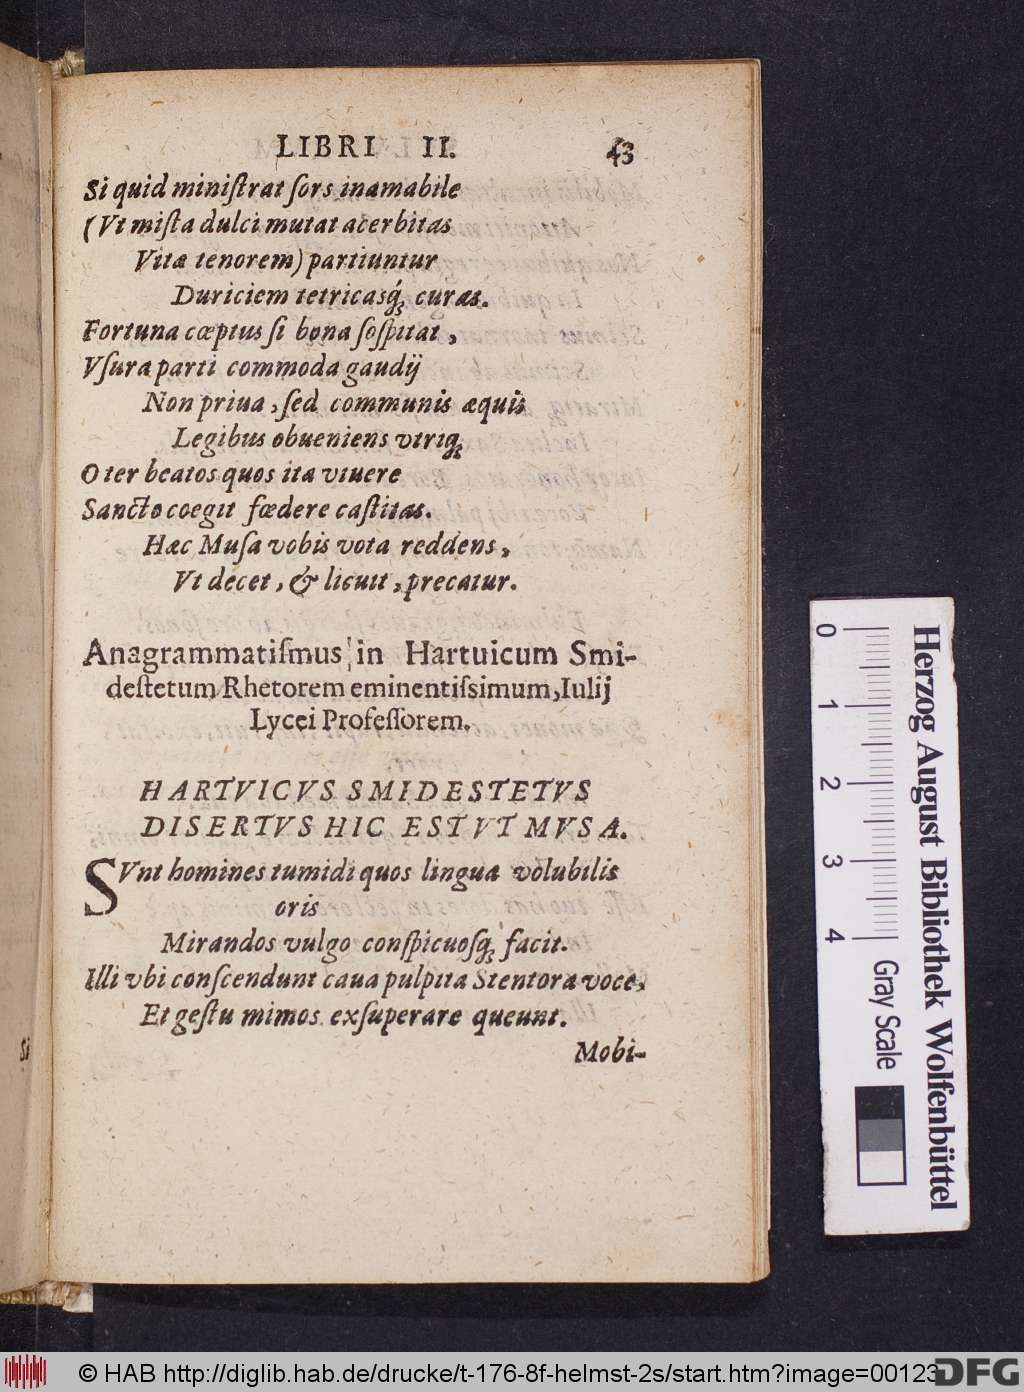 LIBRI II. 43
Si quid miniſtrat ſors inamabile
(Vt miſta dulci mutat acerbitas
Vitæ tenorem) partiuntur
Duriciem tetricasq́ꝫ curas.
Fortuna cœptus ſi bona ſoſpitat,
Vſura parti commoda gaudij
Non priua, ſed communis æquis
Legibus obueniens vtriqꝫ
O ter beatos quos ita viuere
Sancto coegit fœdere caſtitas.
Hæc Muſa vobis vota reddens,
Vt decet, & licuit, precatur.
Anagrammatiſmus in Hartuicum Smi-
deſtetum Rhetorem eminentiſsimum, Iulij
Lycei Profeſſorem.
HARTVICVS SMIDESTETVS
DISERTVS HIC EST VT MVSA.
SVnt homines tumidi quos lingua volubilis
oris
Mirandos vulgo conſpicuosqꝫ facit.
Illi vbi conſcendunt caua pulpita Stentora voce,
Et geſtu mimos exſuperare queunt.
Mobi-
Si
0 1 2 3 4
Gray Scale
Herzog August Bibliothek Wolfenbüttel
© HAB http://diglib.hab.de/drucke/t-176-8f-helmst-2s/start.htm?image=00123
DFG